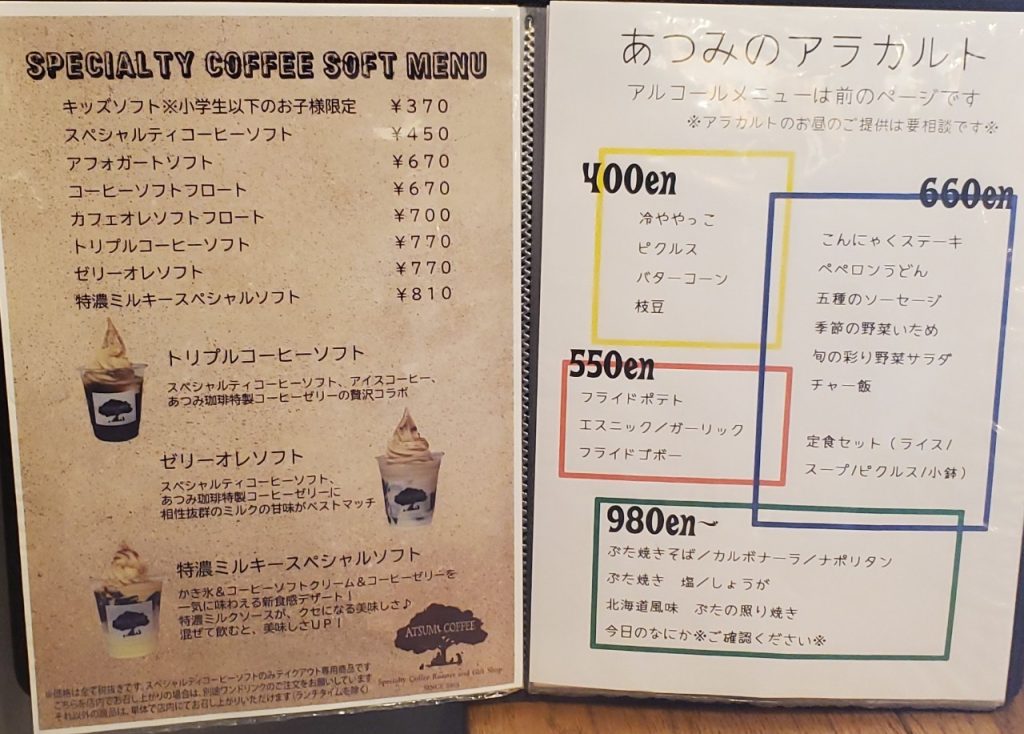 SPECIALTY COFFEE SOFT MENU
キッズソフト※小学生以下のお子様限定 ￥370
スペシャルティコーヒーソフト ￥450
アフォガートソフト ￥670
コーヒーソフトフロート ￥670
カフェオレソフトフロート ￥700
トリプルコーヒーソフト ￥770
ゼリーオレソフト ￥770
特濃ミルキースペシャルソフト ￥810
トリプルコーヒーソフト
スペシャルティコーヒーソフト、アイスコーヒー、
あつみ珈琲特製コーヒーゼリーの贅沢コラボ
ゼリーオレソフト
スペシャルティコーヒーソフト、
あつみ珈琲特製コーヒーゼリーに
相性抜群のミルクの甘味がベストマッチ
特濃ミルキースペシャルソフト
かき氷＆コーヒーソフトクリーム＆コーヒーゼリーを
一気に味わえる新食感デザート！
特濃ミルクソースが、クセになる美味しさ♪
混ぜて飲むと、美味しさUP！
ATSUMI COFFEE
Specialty Coffee Roaster and Gift Shop
※価格は全て税抜きです。スペシャルティコーヒーソフトのみテイクアウト専用商品です
こちらを店内でお召し上がりの場合は、別途ワンドリンクのご注文をお願いしています
それ以外の商品は、単体で店内にてお召し上りいただけます(ランチタイムを除く)
あつみのアラカルト
アルコールメニューは前のページです
※アラカルトのお昼のご提供は要相談です※
400en
冷ややっこ
ピクルス
バターコーン
枝豆
660en
こんにゃくステーキ
ペペロンうどん
五種のソーセージ
季節の野菜いため
旬の彩り野菜サラダ
チャー飯
定食セット（ライス/
スープ/ピクルス/小鉢）
550en
フライドポテト
エスニック/ガーリック
フライドゴボー
980en～
ぶた焼きそば/カルボナーラ/ナポリタン
ぶた焼き 塩/しょうが
北海道風味 ぶたの照り焼き
今日のなにか※ご確認ください※